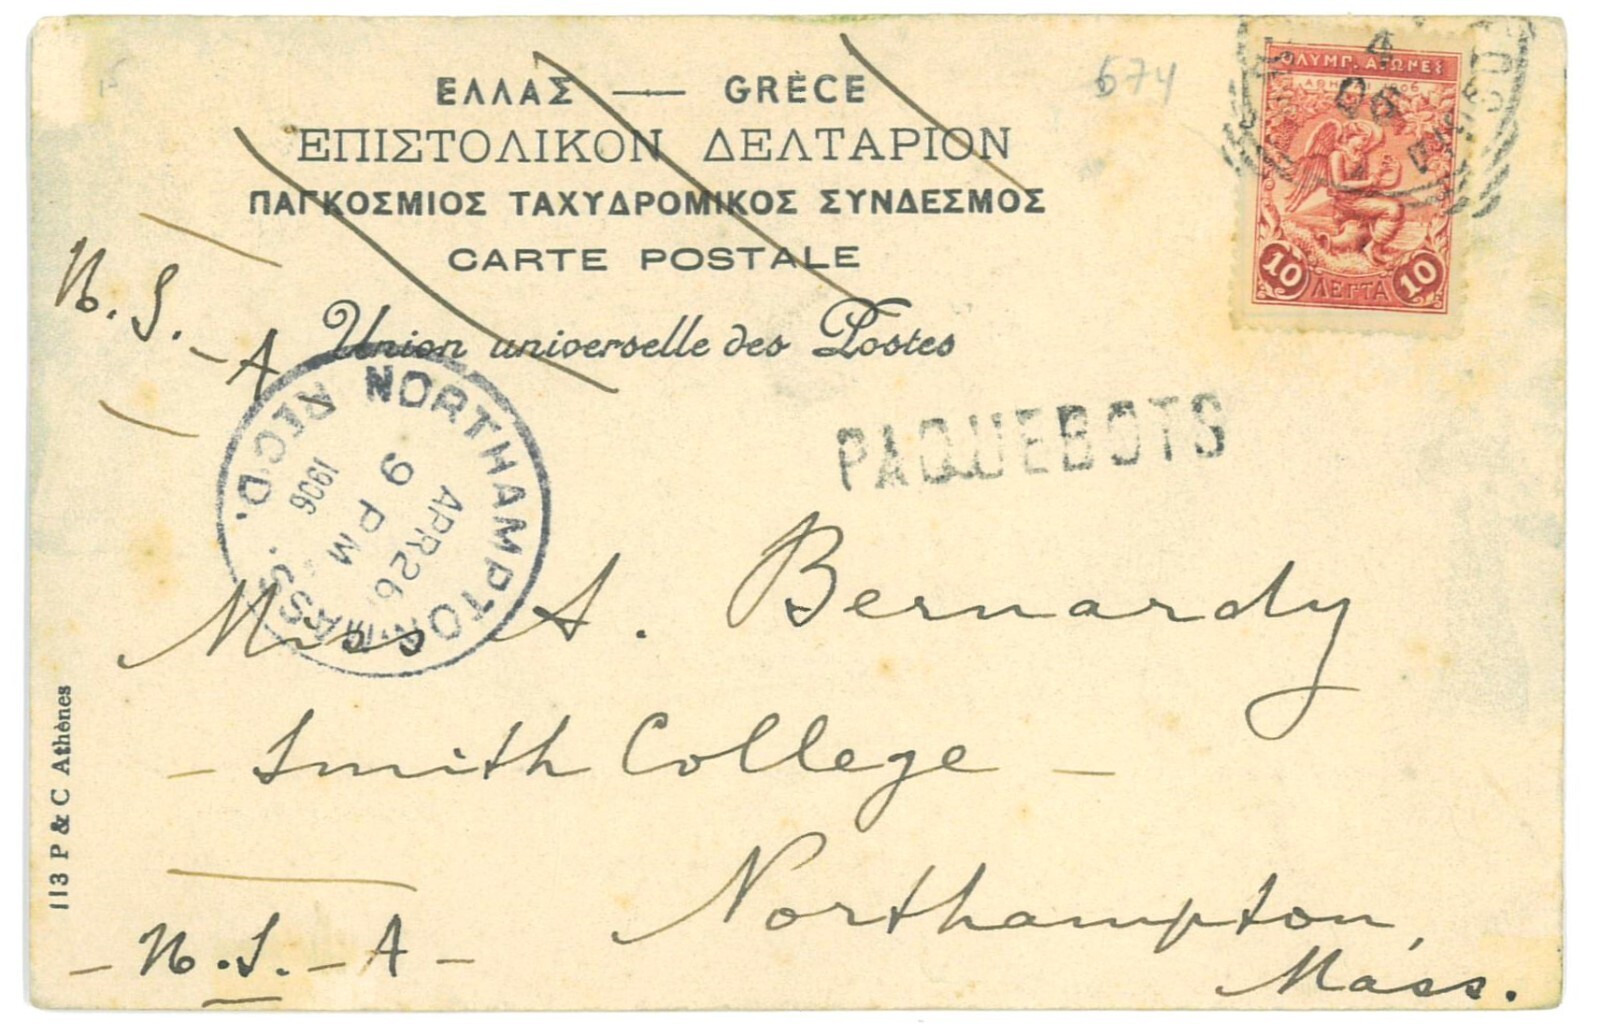 ΕΛΛΑΣ — GRÈCE
ΕΠΙΣΤΟΛΙΚΟΝ ΔΕΛΤΑΡΙΟΝ
ΠΑΓΚΟΣΜΙΟΣ ΤΑΧΥΔΡΟΜΙΚΟΣ ΣΥΝΔΕΣΜΟΣ
CARTE POSTALE
Union universelle des Postes
674
ΟΛΥΜΠ. ΑΓΩΝΕΣ
10 ΛΕΠΤΑ 10
U.S.-A
NORTHAMPTON, MASS. REC'D.
9 PM
APR 26
1906
PAQUEBOTS
Miss A. Bernardy
- Smith College -
Northampton,
Mass.
- U.S.-A -
113 P & C Athènes